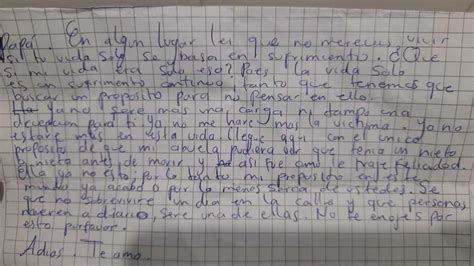 Papá. En algun lugar lei que no mereces vivir
si tu vida solo se basa en sufrimiento. ¿Que
si mi vida era solo eso? Pues la vida solo
es un sufrimiento continuo, tanto que tenemos que
buscar un proposito para no pensar en ello.
Ya no sere mas una carga ni tampoco una
decepcion para ti. Ya no me hare mas la victima. Ya no
estare mas en esta vida. Llegue aqui con el unico
proposito de que mi abuela pudiera ver que tenia un nieto
o nieta antes de morir y asi fue como le traje felicidad.
Ella ya no esta; por lo tanto mi proposito en este
mundo ya acabo o por lo menos cerca de ustedes. Se
que no sobrevivire un dia en la calle y que personas
mueren a diario, sere una de ellas. No te enojes por
esto porfavor.
Adios. Te amo.